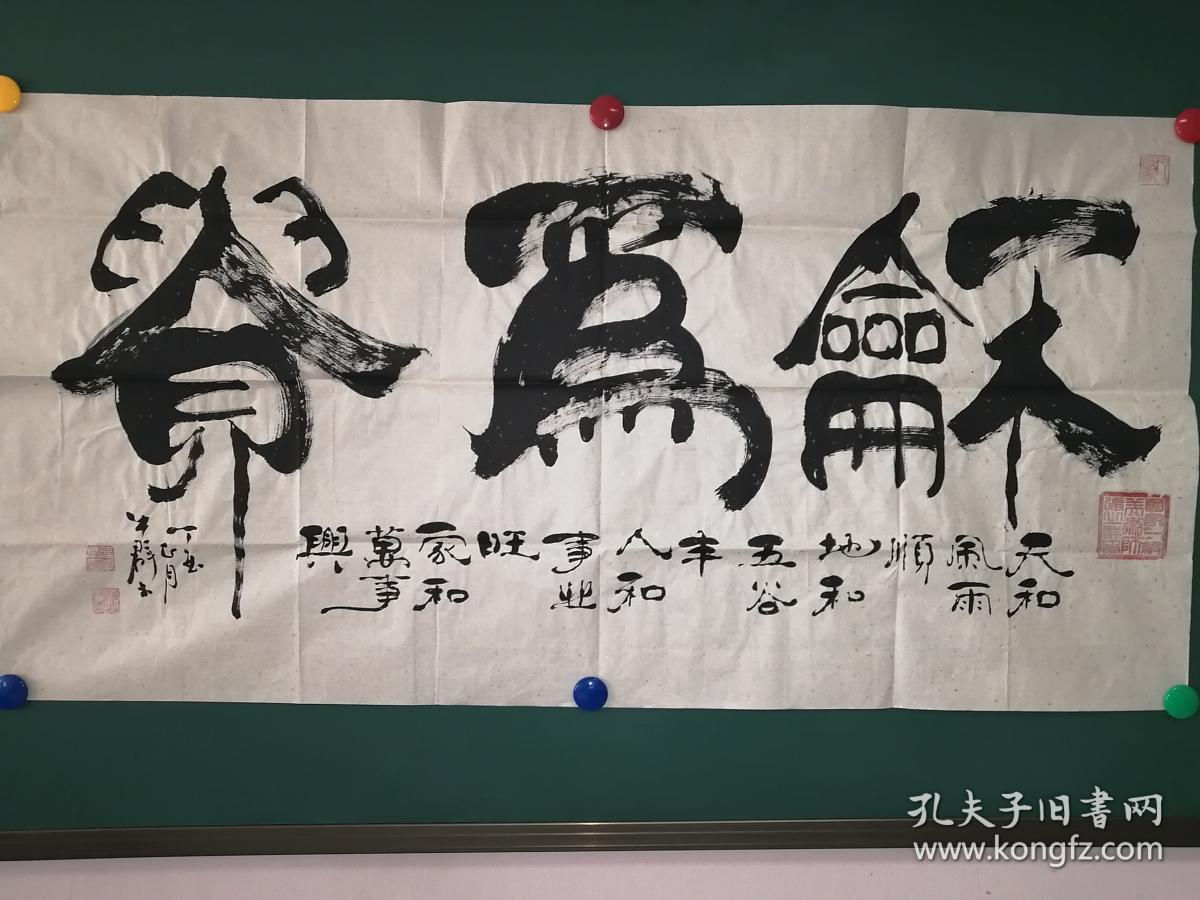 龢為貴
天和
風雨
順
地和
五谷
丰
人和
事業
旺
家和
萬事
興
正月
孔夫子旧書网
www.kongfz.com